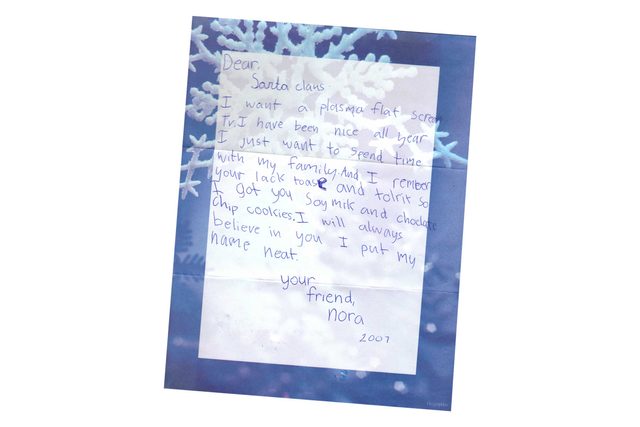 Dear,
Santa claus
I want a plasma flat screan
Tv. I have been nice all year
I just want to spend time
with my family. And I rember
your lack toase and tolrit so
I got you Soymilk and choclate
chip cookies. I will always
believe in you I put my
name neat.
your
friend,
nora
2007